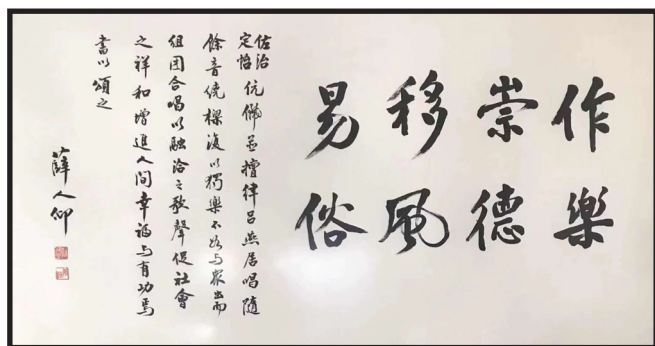 作樂
崇德
移風
易俗
佐治
定怡
伉儷並擅律呂燕居唱隨
餘音繞樑復以獨樂不如與衆出而
組团合唱以融洽之歌聲促社會
之祥和增進人间幸福与有功焉
書以頌之
薛人仰